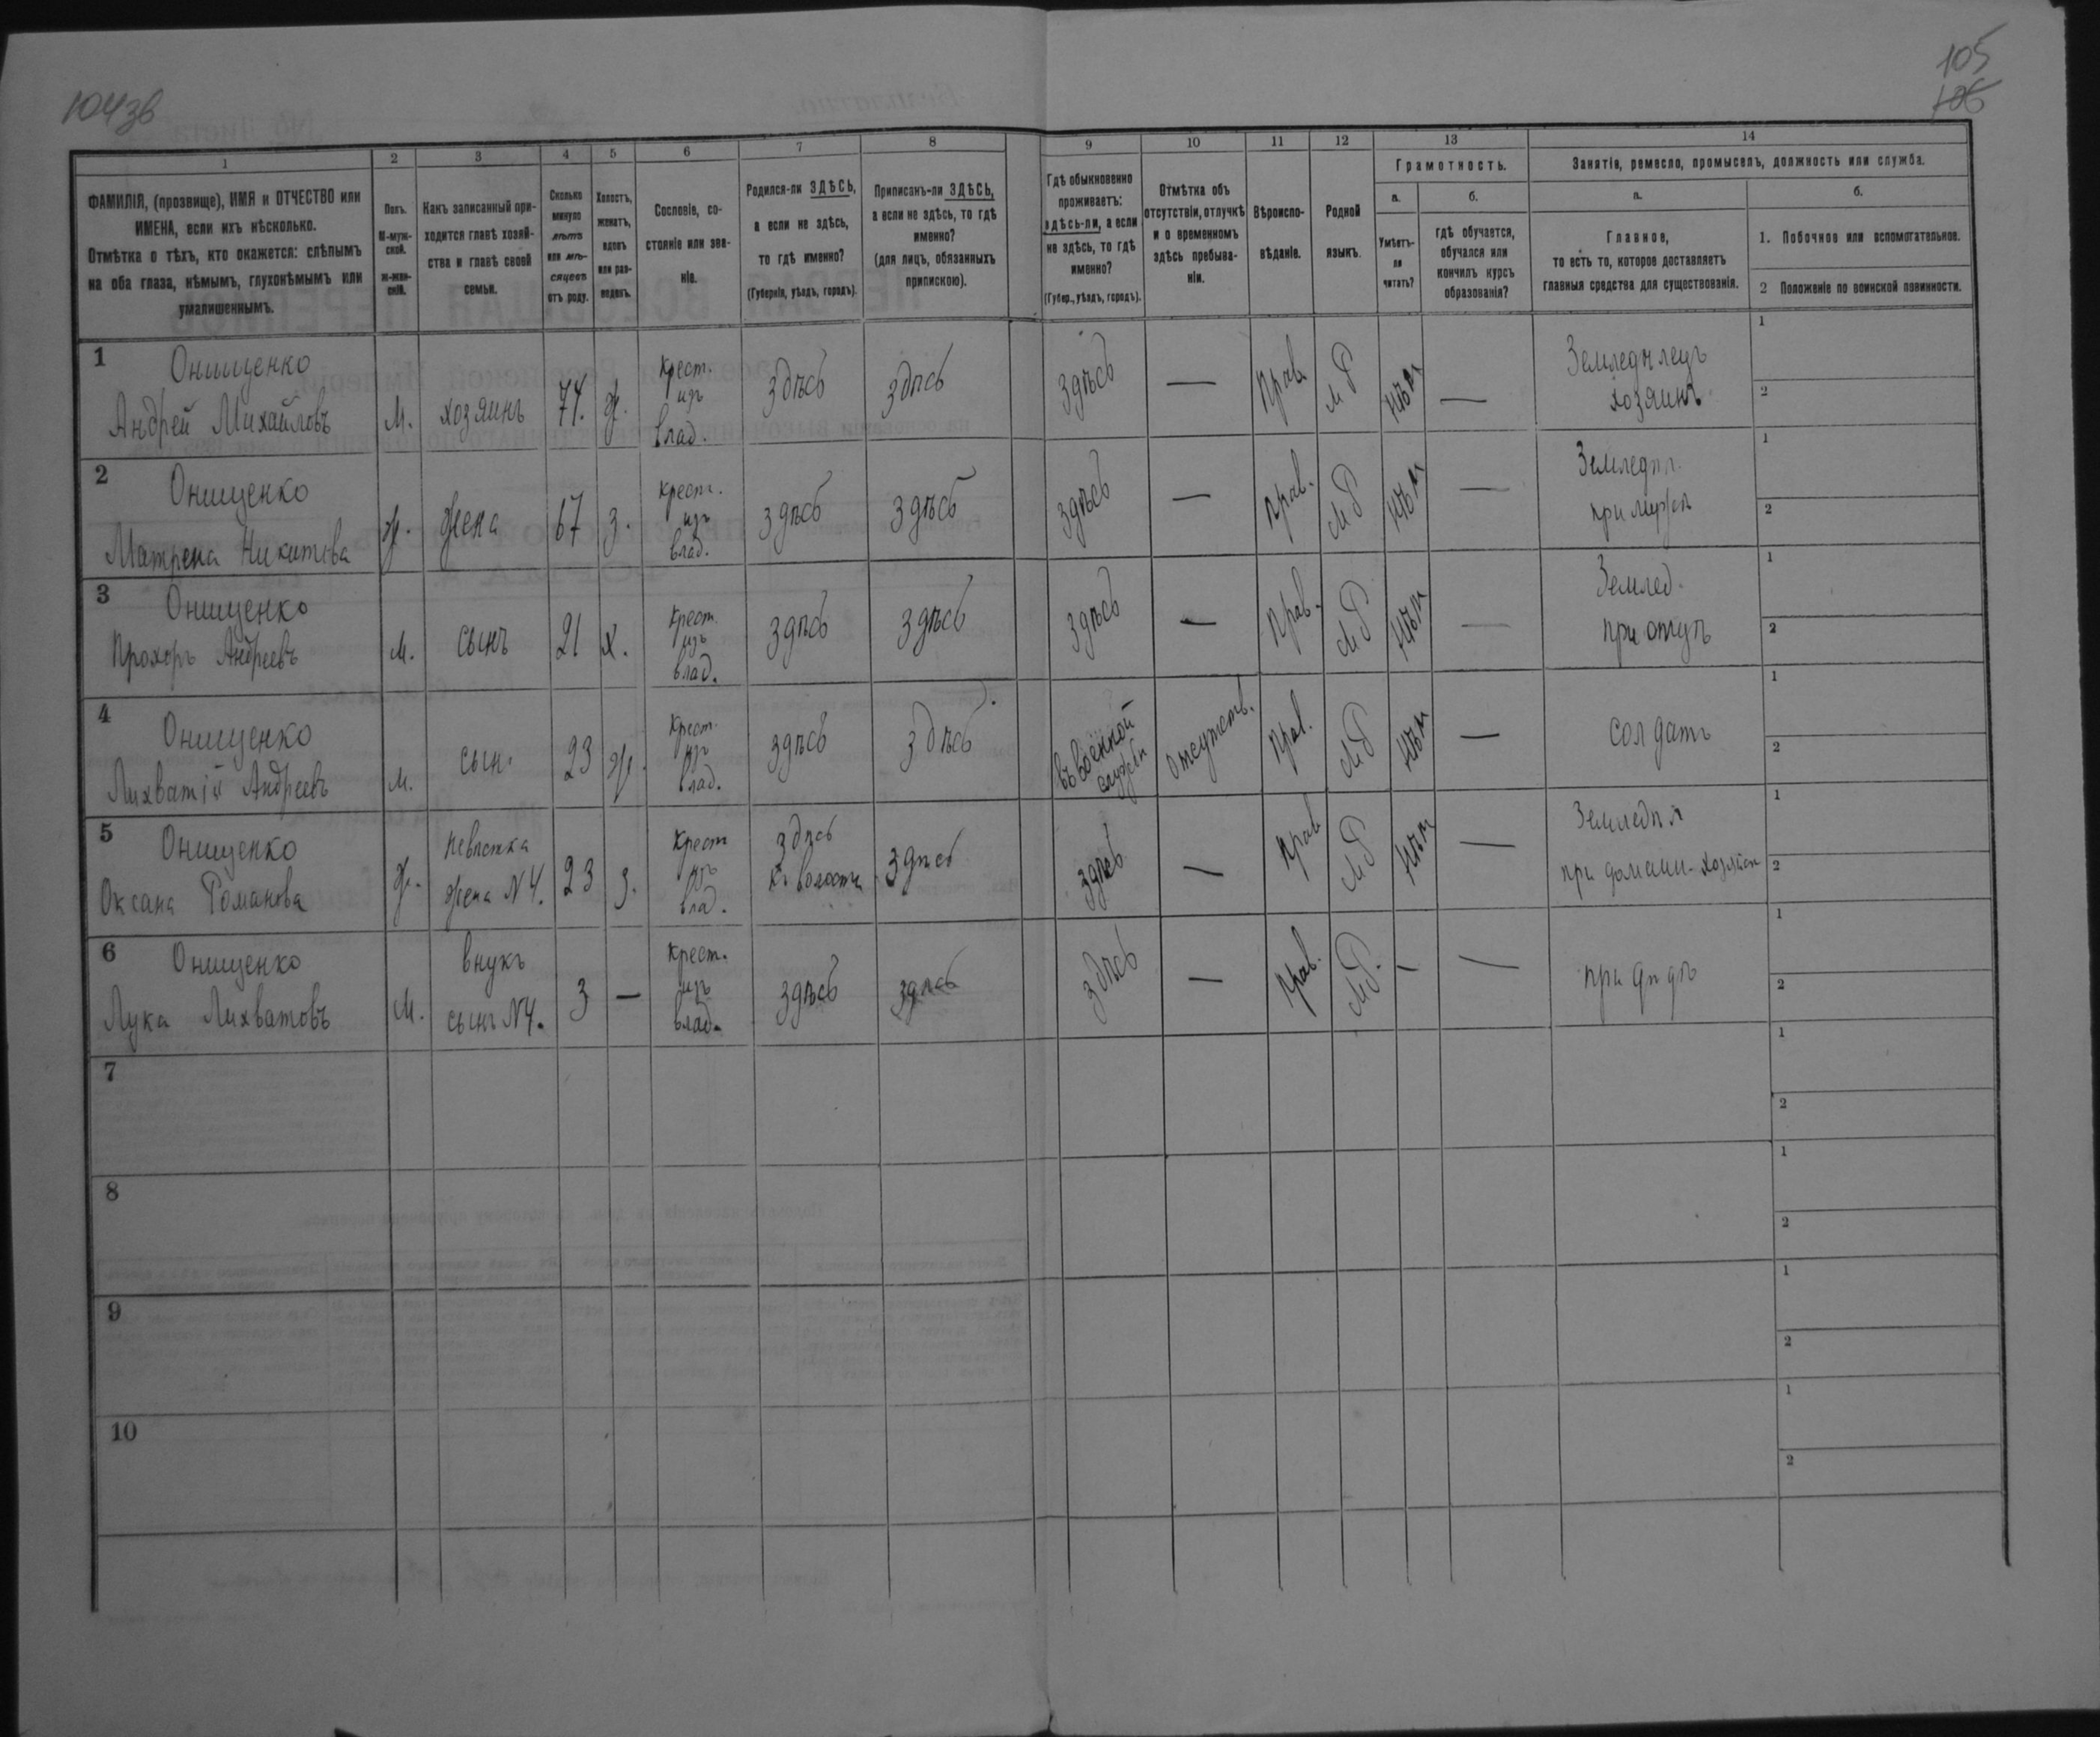 104зв
105
106
1
2
3
4
5
6
7
8
9
10
11
12
13
14
ФАМИЛІЯ, (прозвище), ИМЯ и ОТЧЕСТВО или
ИМЕНА, если ихъ нѣсколько.
Отмѣтка о тѣхъ, кто окажется: слѣпымъ
на оба глаза, нѣмымъ, глухонѣмымъ или
умалишеннымъ.
Полъ.
М-муж-
ской.
ж-жен-
скій.
Какъ записанный при-
ходится главѣ хозяй-
ства и главѣ своей
семьи.
Сколько
минуло
лѣтъ
или мѣ-
сяцевъ
отъ роду.
Холостъ,
женатъ,
вдовъ
или раз-
веденъ.
Сословіе, со-
стояніе или зва-
ніе.
Родился-ли ЗДѢСЬ,
а если не здѣсь,
то гдѣ именно?
(Губернія, уѣздъ, городъ).
Приписанъ-ли ЗДѢСЬ,
а если не здѣсь, то гдѣ
именно?
(для лицъ, обязанныхъ
припискою).
Гдѣ обыкновенно
проживаетъ:
здѣсь-ли, а если
не здѣсь, то гдѣ
именно?
(Губер., уѣздъ, городъ).
Отмѣтка объ
отсутствіи, отлучкѣ
и о временномъ
здѣсь пребыва-
ніи.
Вѣроиспо-
вѣданіе.
Родной
языкъ.
Грамотность.
а.
Умѣетъ-
ли
читать?
б.
гдѣ обучается,
обучался или
кончилъ курсъ
образованія?
Занятія, ремесло, промыселъ, должность или служба.
а.
Главное,
то есть то, которое доставляетъ
главныя средства для существованія.
б.
1. Побочное или вспомогательное.
2 Положеніе по воинской повинности.
1
Онищенко
Андрей Михайловъ
М.
хозяинъ
74.
ж.
крест.
изъ
влад.
здѣсь
здѣсь
здѣсь
—
Прав
МР
нѣт
—
Земледѣлецъ
хозяинъ.
1
2
2
Онищенко
Матрена Никитова
ж.
жена
67
з.
крест.
изъ
влад.
здѣсь
здѣсь
здѣсь
—
прав.
МР
нѣт
—
Земледѣл.
при мужѣ
1
2
3
Онищенко
Прохоръ Андреевъ
м.
сынъ
21
х.
крест.
изъ
влад.
здѣсь
здѣсь
здѣсь
—
прав.
МР
нѣт
—
Землед.
при отцѣ
1
2
4
Онищенко
Лихватій Андреевъ
м.
сын.
23
ж.
крест.
изъ
влад.
здѣсь
здѣсь
въ военной
службѣ
отсутств.
прав.
МР
нѣт
—
солдатъ
1
2
5
Онищенко
Оксана Романова
ж.
невѣстка
жена N4.
23
з.
крест
изъ
влад.
здѣсь
въ волости
здѣсь
здѣсь
—
прав
МР
нѣт
—
Земледѣл
при домашн. хозяйст
1
2
6
Онищенко
Лука Лихватовъ
М.
внукъ
сынъ N4.
3
—
крест.
изъ
влад.
здѣсь
здѣсь
здѣсь
—
прав.
МР.
—
—
при дѣдѣ
1
2
7
1
2
8
1
2
9
1
2
10
1
2